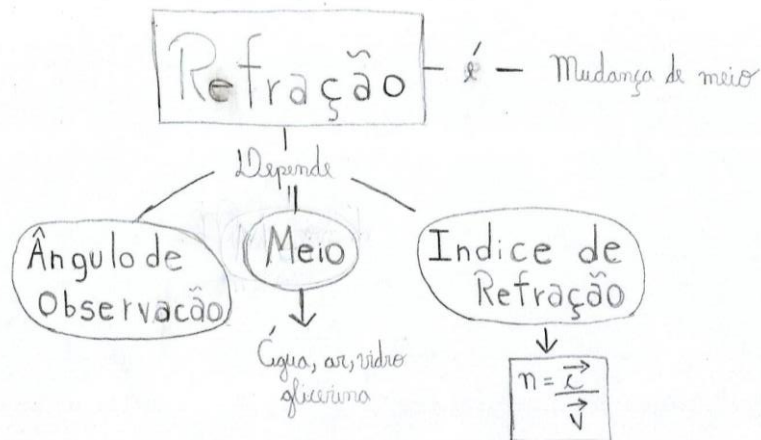 Refração - é - Mudança de meio
Depende
Ângulo de
Observacão
Meio
Água, ar, vidro
glicerina
Indice de
Refração
n = c⃗
v⃗